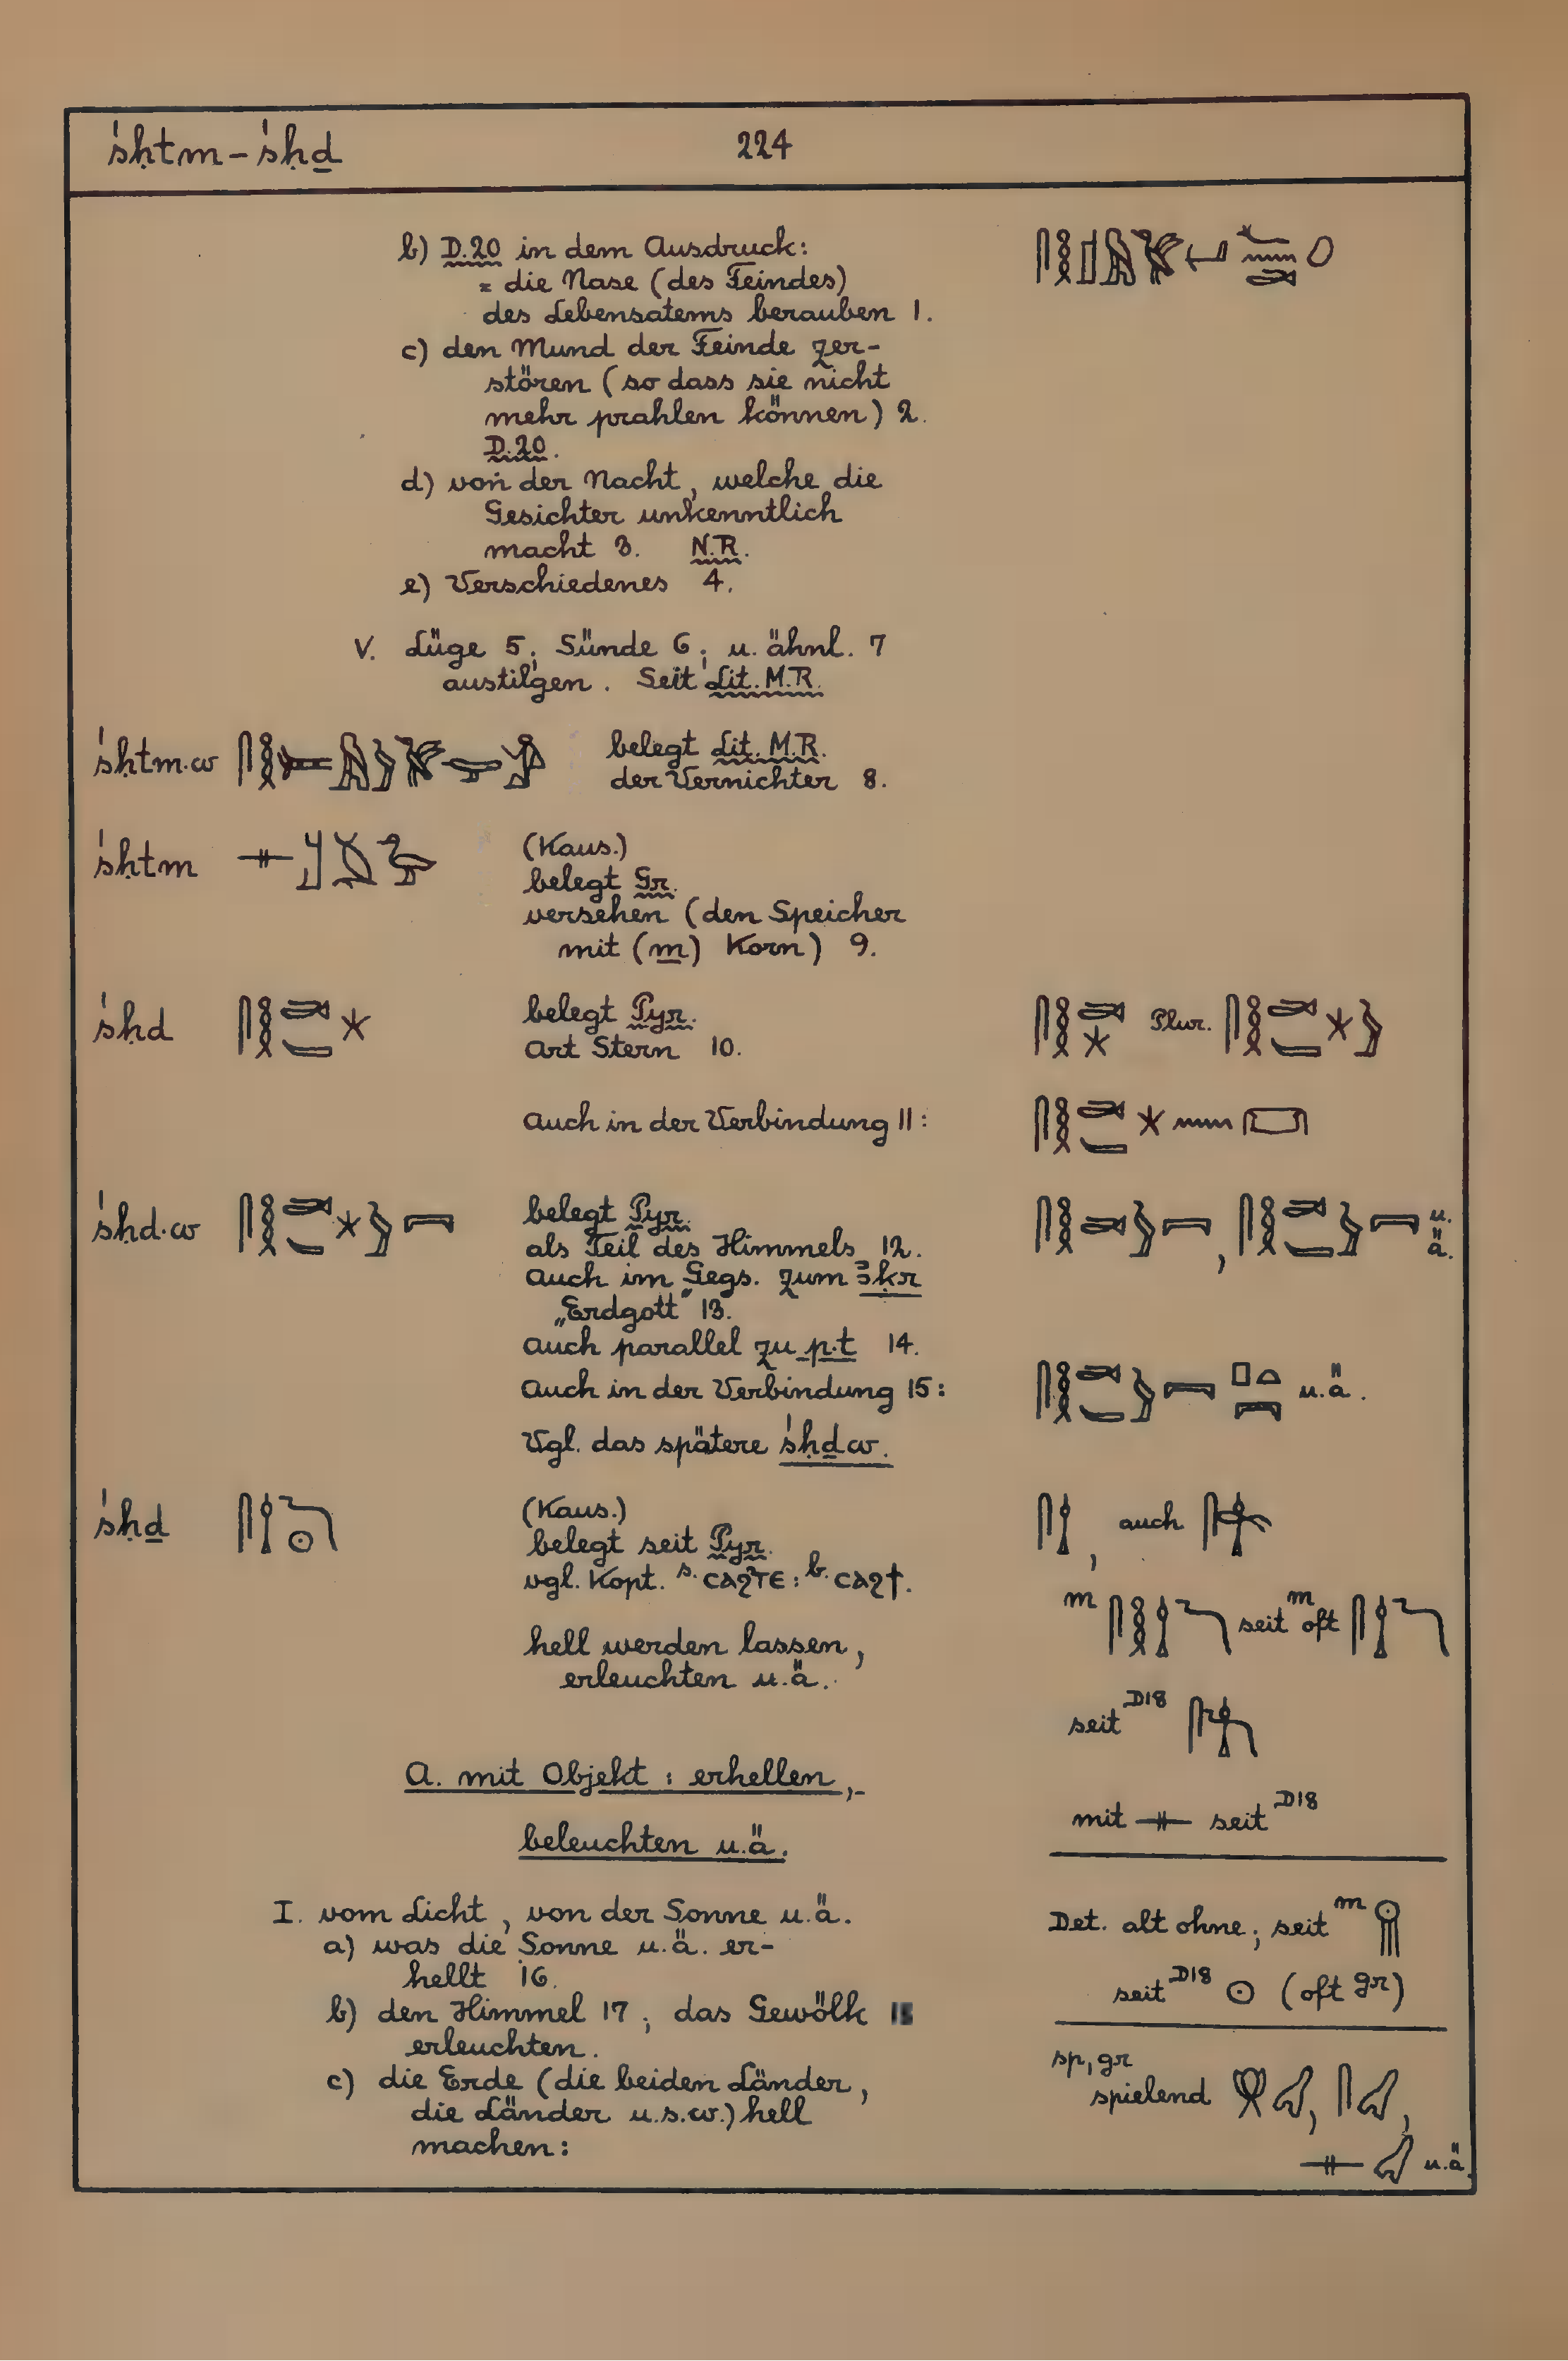 śḥtm – śḥḏ
224
b) D.20 in dem Ausdruck:
= die Nase (des Feindes)
des Lebensatems berauben 1.
c) den Mund der Feinde zer-
stören (so dass sie nicht
mehr prahlen können) 2.
D.20.
d) von der Nacht, welche die
Gesichter unkenntlich
macht 3. N.R.
e) Verschiedenes 4.
V. Lüge 5; Sünde 6; u. ähnl. 7
austilgen. Seit Lit. M.R.
śḥtm·w
belegt Lit. M.R.
der Vernichter 8.
śḥtm
(Kaus.)
belegt Gr.
versehen (den Speicher
mit (m) Korn) 9.
śḥd
belegt Pyr.
Art Stern 10.
Plur.
auch in der Verbindung 11:
śḥd·w
belegt Pyr.
als Teil des Himmels 12.
auch im Gegs. zum ꜣkr
„Erdgott“ 13.
auch parallel zu p·t 14.
auch in der Verbindung 15:
Vgl. das spätere śḥḏw.
, u. ä.
u. ä.
śḥḏ
(Kaus.)
belegt seit Pyr.
vgl. Kopt. s. ⲥⲁϩⲧⲉ : b. ⲥⲁϩϯ.
hell werden lassen,
erleuchten u.ä.
, auch
m seit m oft
seit D18
mit seit D18
A. mit Objekt: erhellen,
beleuchten u.ä.
I. vom Licht, von der Sonne u.ä.
a) was die Sonne u.ä. er-
hellt 16.
b) den Himmel 17; das Gewölk
erleuchten.
c) die Erde (die beiden Länder,
die Länder u.s.w.) hell
machen:
Det. alt ohne; seit m
seit D18 (oft gr)
sp, gr
spielend , ,
u.ä.